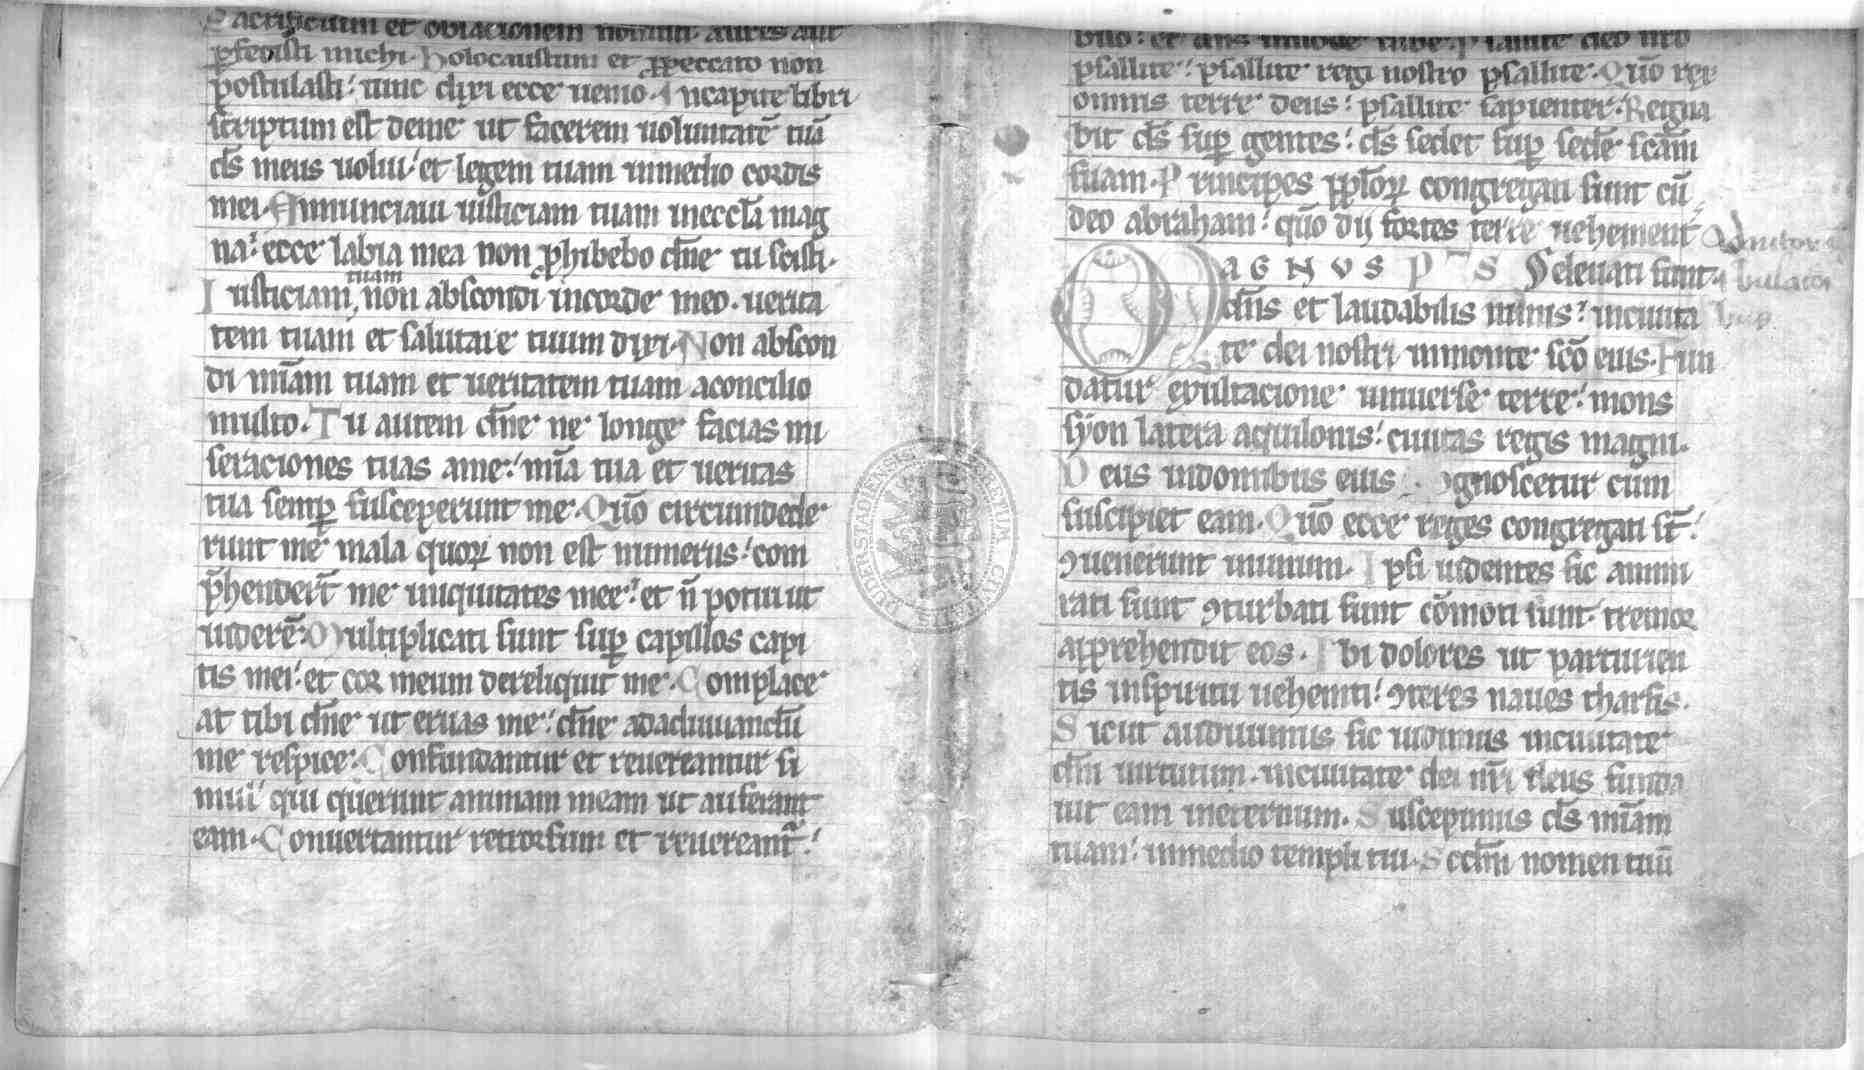 Sacrificium et oblacionem noluisti. aures aut
p̄fecisti michi. Holocaustum et ꝓpeccato non
postulasti: tunc dixi ecce uenio. Incapite libri
scriptum est deme ut facerem uoluntatē tuā
ds̄ meus uolui: et legem tuam inmedio cordis
mei. Annunciaui iusticiam tuam ineccl̄a mag
na: ecce labia mea non ꝓhibebo dn̄e tu scisti.
Iusticiam tuam non abscondi incorde meo. uerita
tem tuam et salutare tuum dixi. Non abscon
di mīam tuam et ueritatem tuam aconcilio
multo. Tu autem dn̄e ne longe facias mi
seraciones tuas ame: mīa tua et ueritas
tua semꝑ susceperunt me. Quō circumdede
runt me mala quoꝝ non est numerus: com
p̄henderūt me iniquitates mee: et n̄ potui ut
uiderē. Multiplicati sunt suꝑ capillos capi
tis mei: et cor meum dereliquit me. Complace
at tibi dn̄e ut eruas me: dn̄e adadiuuandū
me respice. Confundantur et reuereantur si
mul: qui querunt animam meam ut auferant
eam. Conuertantur retrorsum et reuereant᷑:
bilo: et dn̄s inuoce tube. Psallite deo nr̄o
psallite: psallite regi nostro psallite. Quō rex
omnis terre deus: psallite sapienter. Regna
bit ds̄ suꝑ gentes: ds̄ sedet suꝑ sedē scām
suam. Principes ppl̄oꝝ congregati sunt cū
deo abraham: quō dij fortes terre uehement
MAGNUS PS eleuati sunt.
dn̄s et laudabilis nimis: inciuita
te dei nostri inmonte scō eius. Fun
datur exultacione uniuerse terre: mons
syon latera aquilonis: ciuitas regis magni.
Deus indomibus eius ꝯgnoscetur cum
suscipiet eam. Quō ecce reges congregati st̄:
ꝯuenerunt inunum. Ipsi uidentes sic ammi
rati sunt ꝯturbati sunt cōmoti sunt. tremor
apprehendit eos. Ibi dolores ut parturien
tis inspiritu uehemti: ꝯteres naues tharsis.
Sicut audiuimus sic uidimus inciuitate
dn̄i uirtutum. inciuitate dei nr̄i deus funda
uit eam ineternum. Suscepimus ds̄ mīam
tuam: inmedio templi tui. Scdm̄ nomen tuū